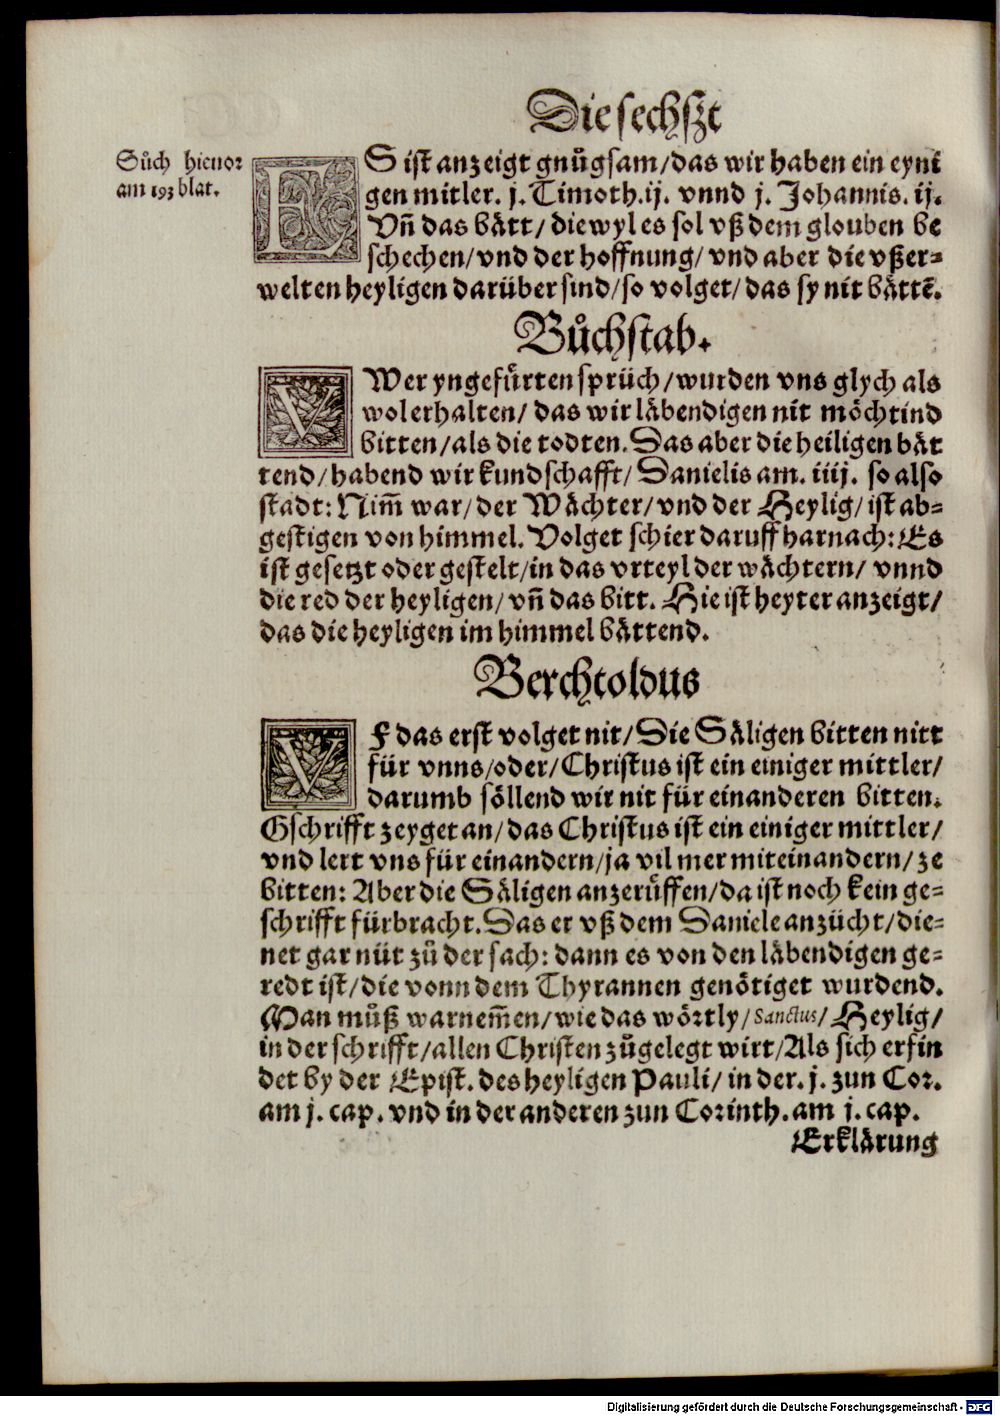 Die sechſzt
Sůch hieuor
am 193 blat.
ES iſt anzeigt gnůgſam/ das wir haben ein eyni
gen mitler. j. Timoth. ij. vnnd j. Johannis. ij.
Vn̄ das bätt/ diewyl es ſol vß dem glouben be
ſchechen/ vnd der hoffnung/ vnd aber die vßer-
welten heyligen darüber ſind/ ſo volget/ das ſy nit bättē.
Bůchſtab.
VWer yngefürten ſprüch/ wurden vns glych als
wol erhalten/ das wir läbendigen nit möchtind
bitten/ als die todten. Das aber die heiligen bät
tend/ habend wir kundſchafft/ Danielis am. iiij. ſo alſo
ſtadt: Nim̄ war/ der Wächter/ vnd der Heylig/ iſt ab-
geſtigen von himmel. Volget ſchier daruff harnach: Es
iſt geſetzt oder geſtelt/ in das vrteyl der wächtern/ vnnd
die red der heyligen/ vn̄ das bitt. Hie iſt heyter anzeigt/
das die heyligen im himmel bättend.
Berchtoldus
VF das erſt volget nit/ Die Säligen bitten nitt
für vnns/ oder/ Chriſtus iſt ein einiger mittler/
darumb ſöllend wir nit für einanderen bitten.
Gſchrifft zeyget an/ das Chriſtus iſt ein einiger mittler/
vnd lert vns für einandern/ ja vil mer miteinandern/ ze
bitten: Aber die Säligen anzerüffen/ da iſt noch kein ge-
ſchrifft fürbracht. Das er vß dem Daniele anzücht/ die-
net gar nüt zů der ſach: dann es von den läbendigen ge-
redt iſt/ die vonn dem Thyrannen genötiget wurdend.
Man můß warnem̄en/ wie das wörtly/ Sanctus/ Heylig/
in der ſchrifft/ allen Chriſten zůgelegt wirt/ Als ſich erfin
det by der Epiſt. des heyligen Pauli/ in der. j. zun Cor.
am j. cap. vnd in der anderen zun Corinth. am j. cap.
Erklärung
Digitalisierung gefördert durch die Deutsche Forschungsgemeinschaft - DFG